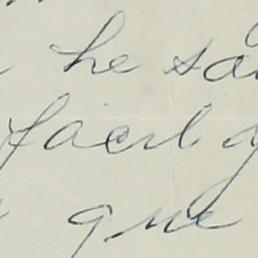 he sa
facil q
que